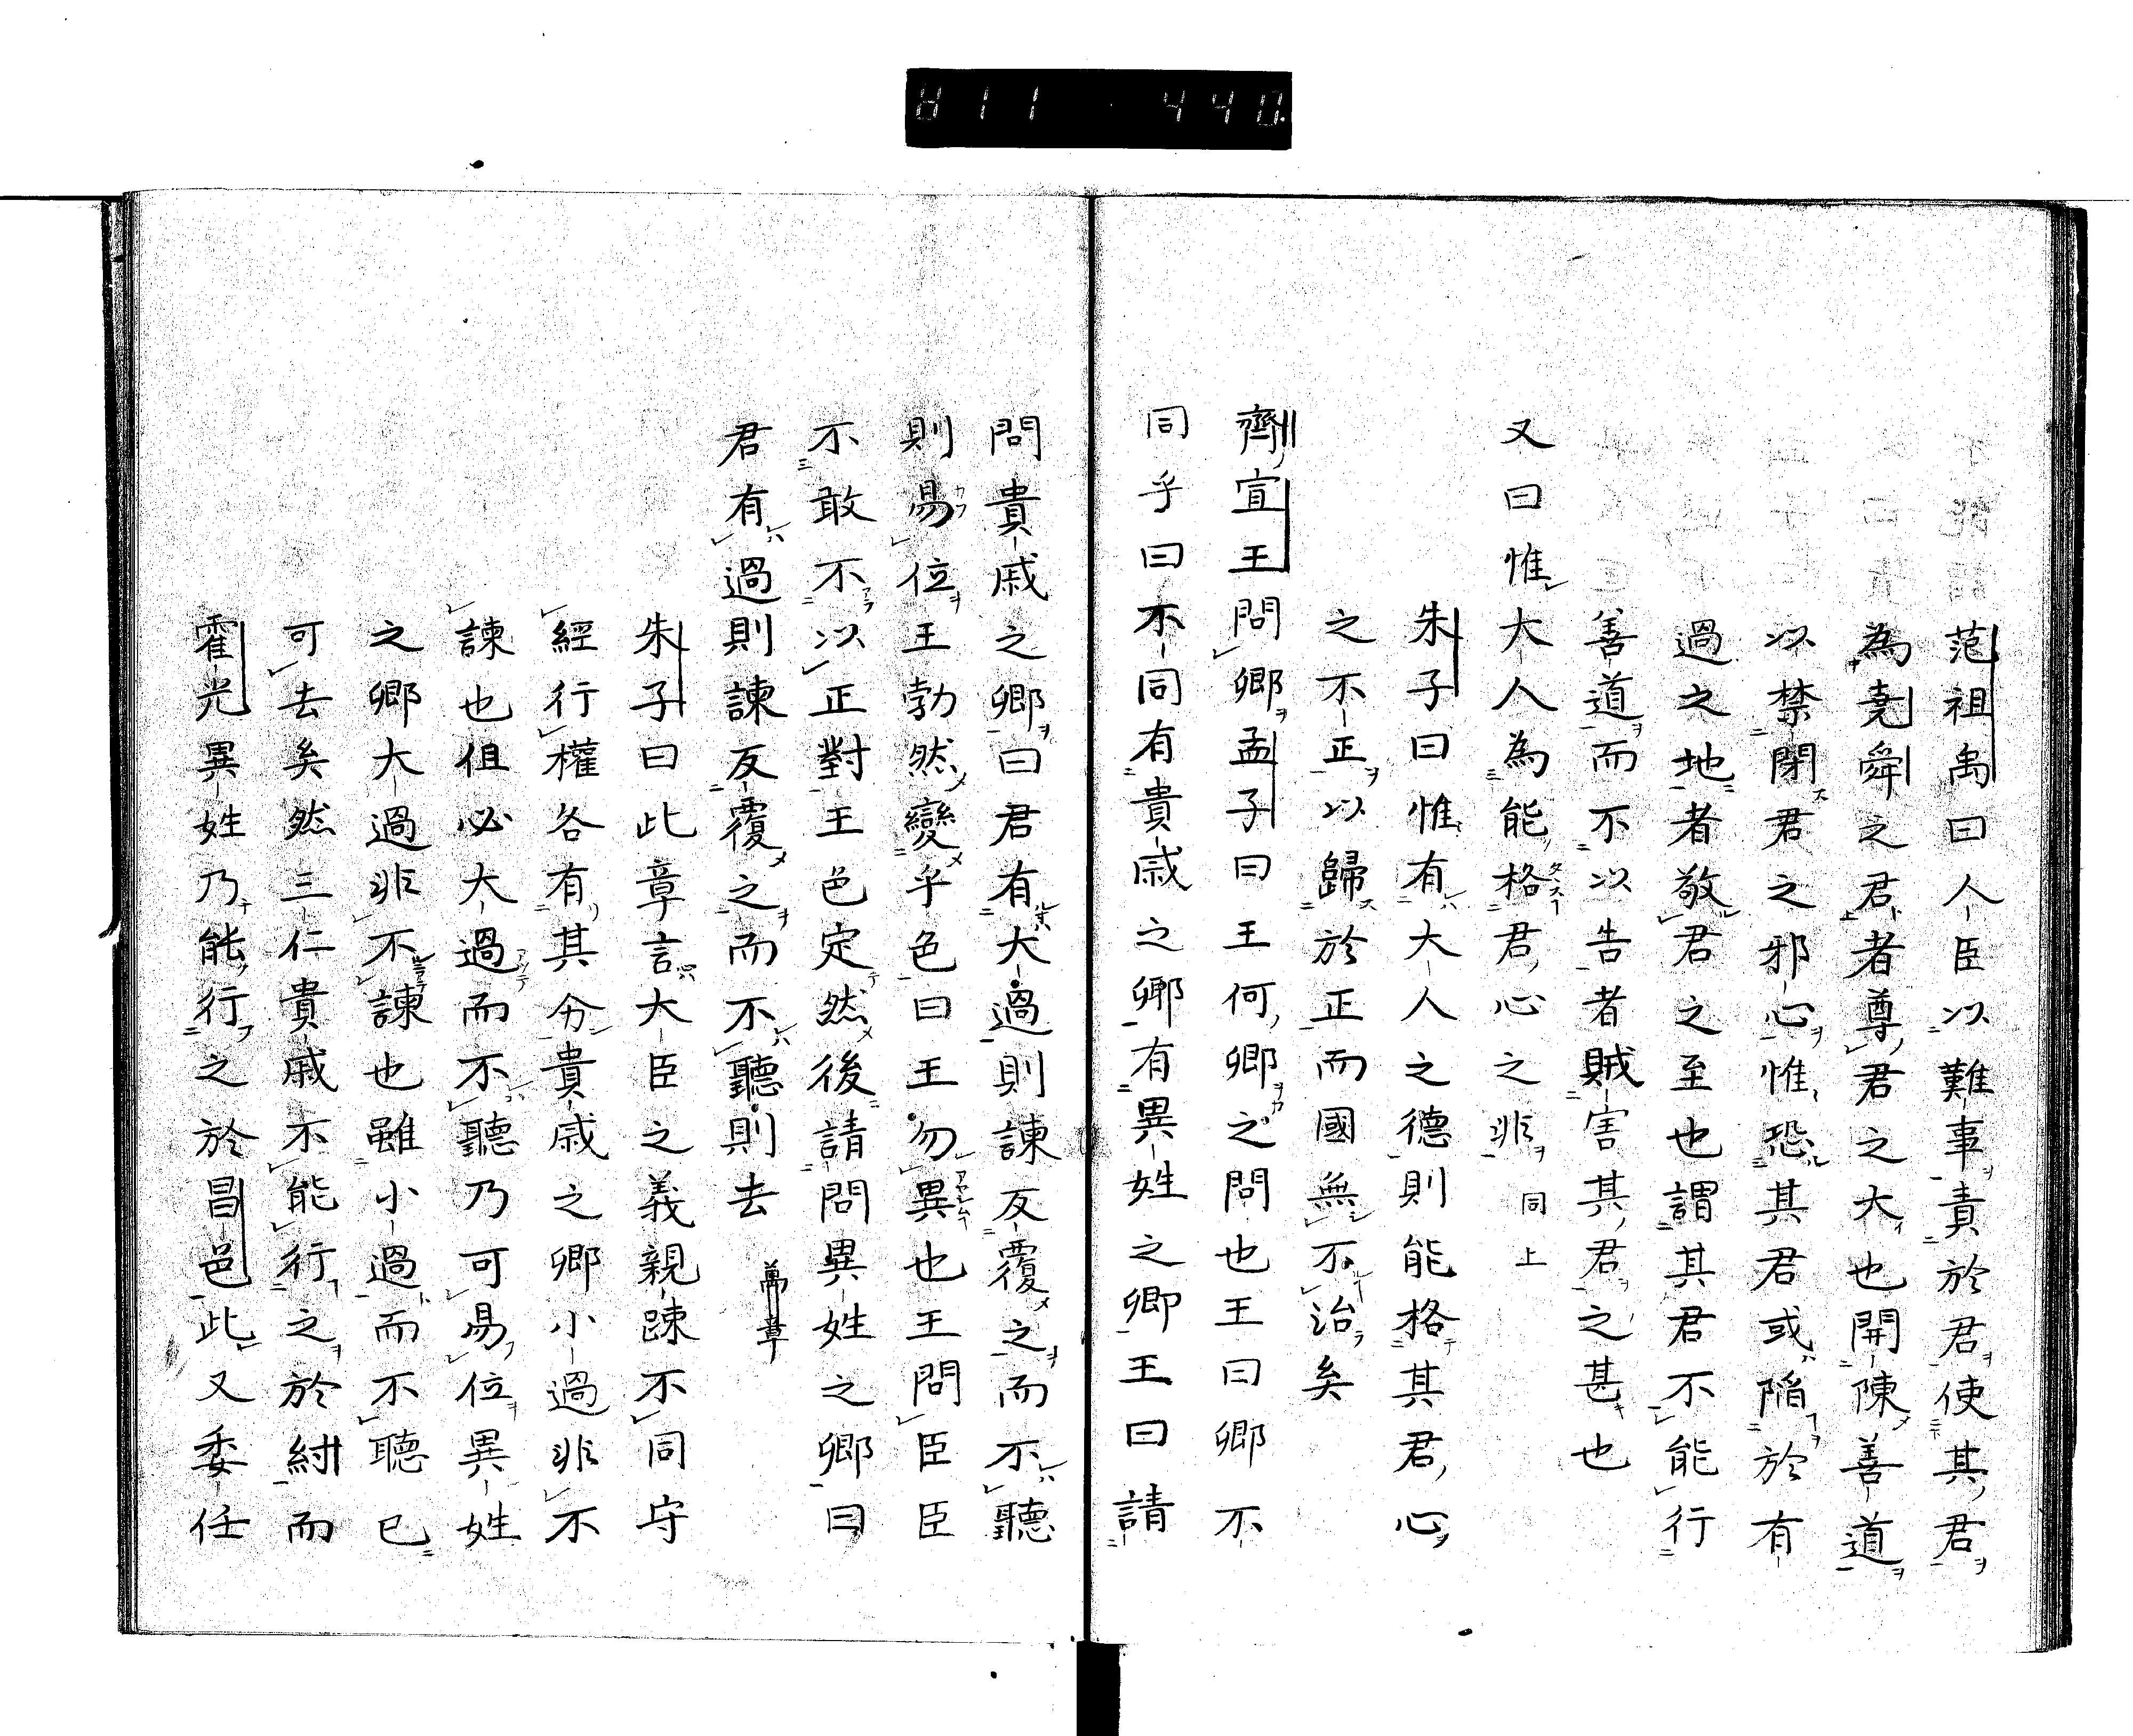 811 440
范祖禹曰人臣以難事責於君使其君
為堯舜之君者尊君之大也開陳善道
以禁閉君之邪心惟恐其君或陥於有
過之地者敬君之至也謂其君不能行
善道而不以告者賊害其君之甚也
又曰惟大人為能格君心之非 同上
朱子曰惟有大人之德則能格其君心
之不正以歸於正而國無不治矣
齊宣王問卿孟子曰王何卿之問也王曰卿不
同乎曰不同有貴戚之卿有異姓之卿王曰請
問貴戚之卿曰君有大過則諫反覆之而不聽
則易位王勃然變乎色曰王勿異也王問臣臣
不敢不以正對王色定然後請問異姓之卿曰
君有過則諫反覆之而不聽則去 萬章
朱子曰此章言大臣之義親踈不同守
經行權各有其分貴戚之卿小過非不
諫也但必大過而不聽乃可易位異姓
之卿大過非不諫也雖小過而不聽已
可去矣然三仁貴戚不能行之於紂而
霍光異姓乃能行之於昌邑此又委任